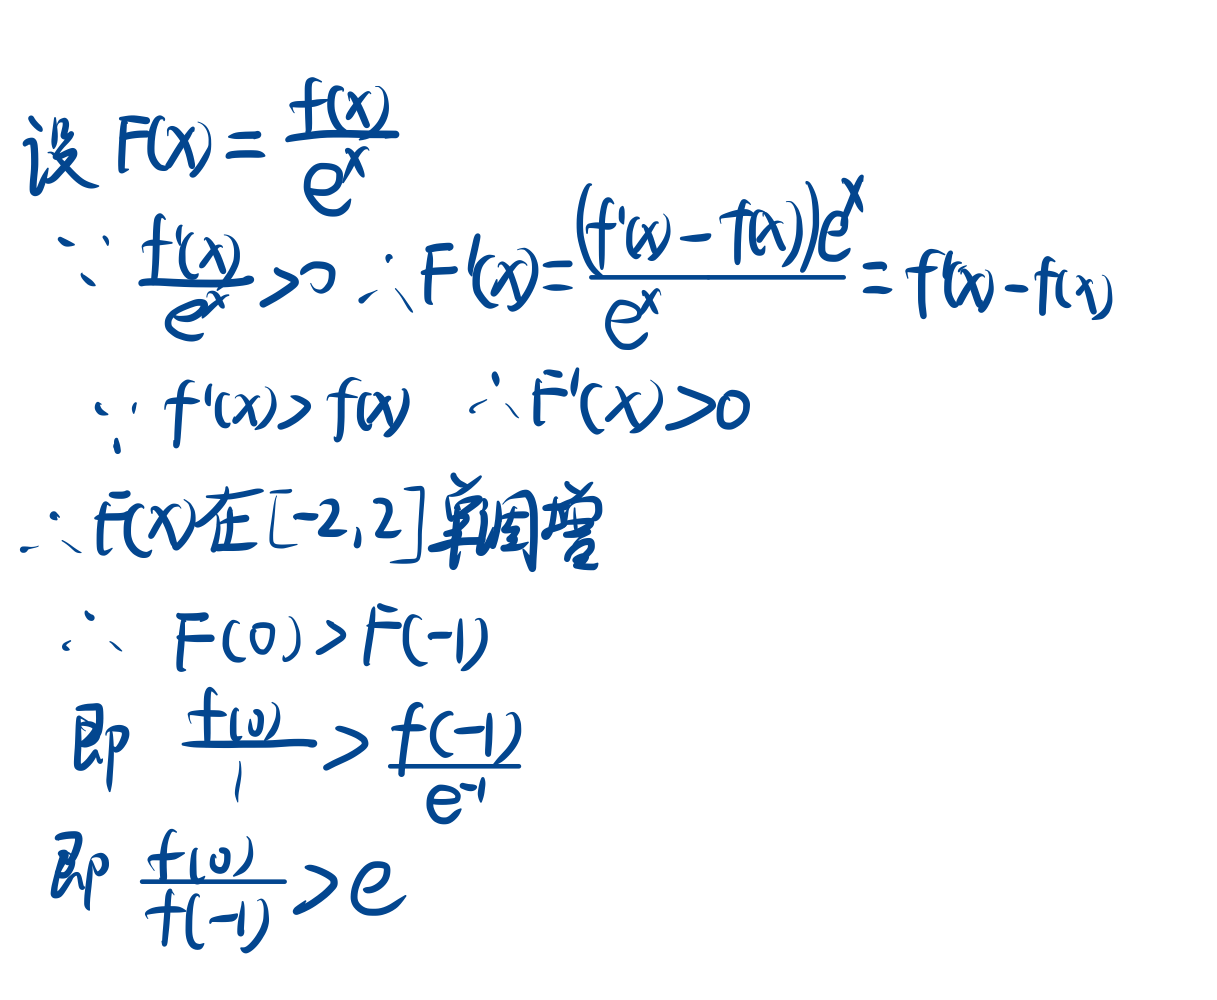 设 F(x) = f(x)/e^x
∵ f'(x)/e^x > 0 ∴ F'(x) = (f'(x) - f(x))e^x / e^x = f'(x) - f(x)
∵ f'(x) > f(x) ∴ F'(x) > 0
∴ F(x)在[-2,2]单调增
∴ F(0) > F(-1)
即 f(0)/1 > f(-1)/e^-1
即 f(0)/f(-1) > e